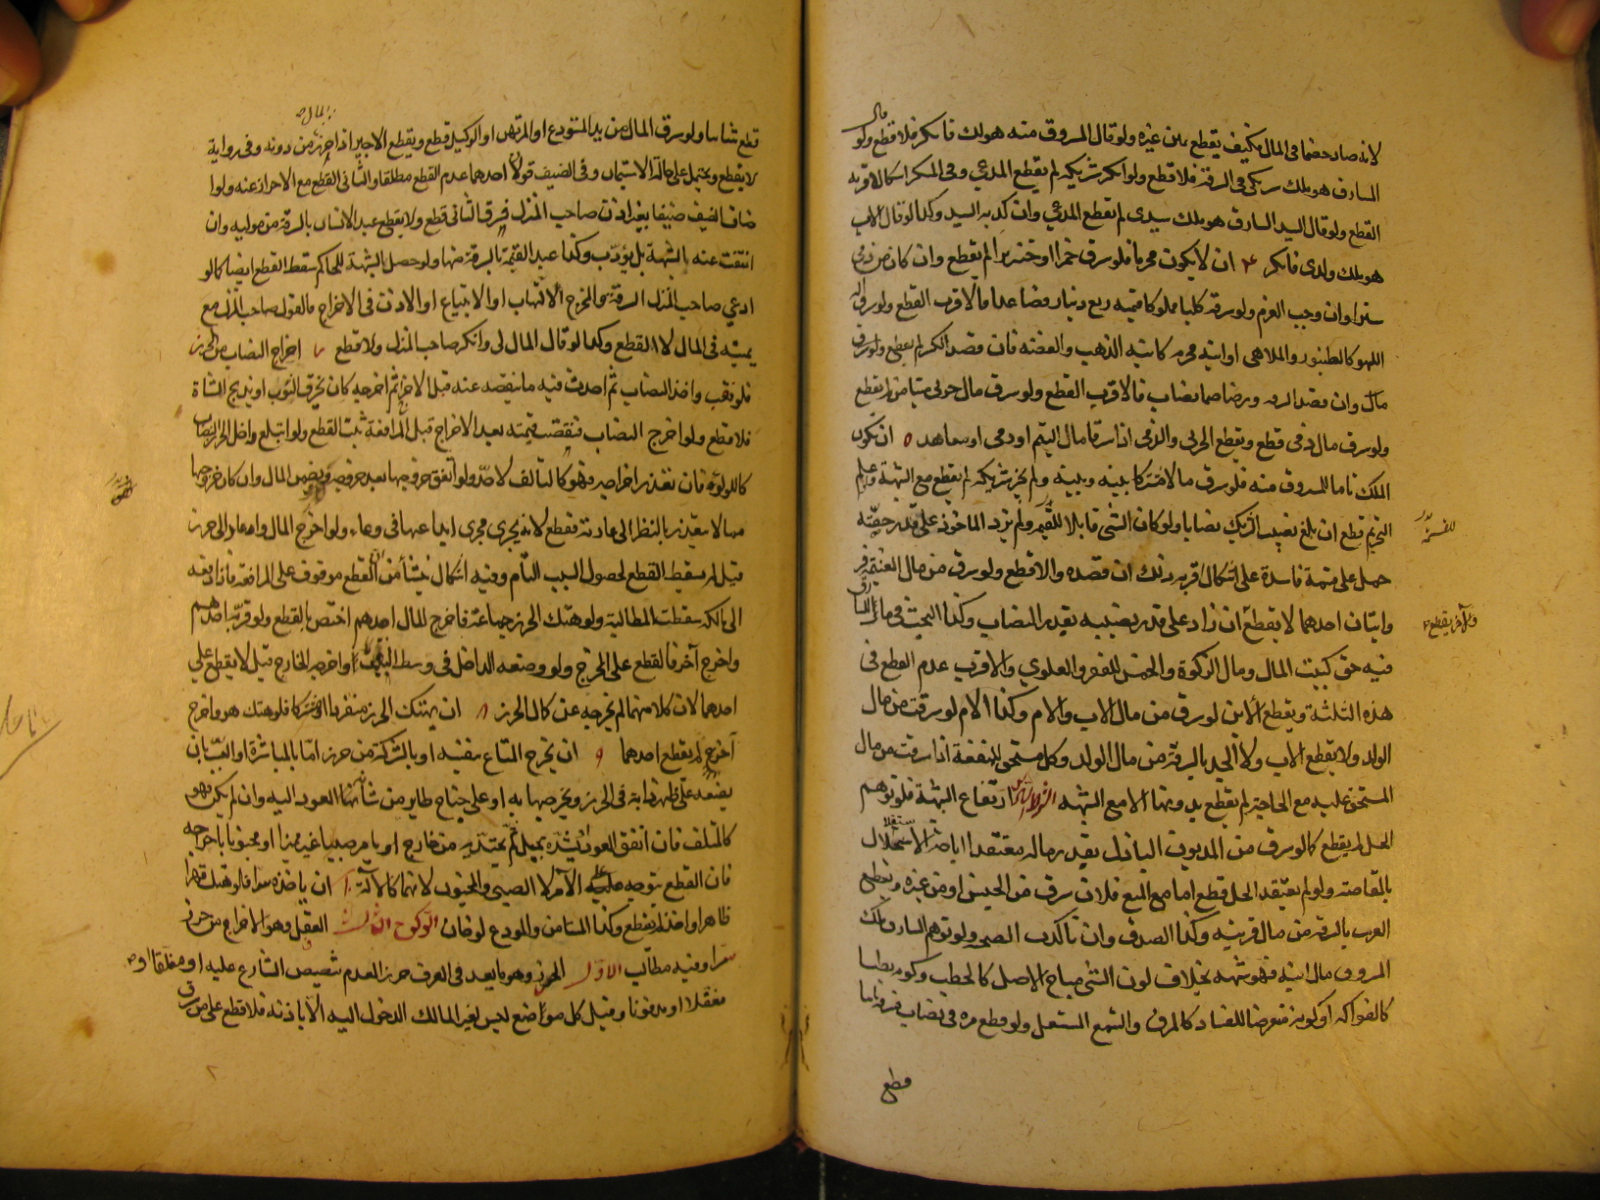 لانه صار خصما في المال فكيف يقطع بيمين غيره ولو قال المسروق منه هو لك فانكر فلا قطع ولو قال
السارق هو ملك شريكي في السرقة فلا قطع ولو انكر شريكه لم يقطع المدعي وفي المنكر اشكال الاقرب
القطع ولو قال العبد السارق هو ملك سيدي لم يقطع المدعي وان كذبه السيد وكذا لو قال الاب
هو ملك ولدي فانكر ع ان لا يكون محرما فلو سرق خمرا او خنزيرا لم يقطع وان كان من ذمي
مستترا وان وجب الغرم ولو سرق كلبا مملوكا قيمته ربع دينار فصاعدا فالاقرب القطع ولو سرق آلة
اللهو كالطنبور والملاهي او انية محرمة كانية الذهب والفضة فان قصد الكسر لم يقطع ولو سرق
مال وان قصد السرقة ورضاضها نصاب فالاقرب القطع ولو سرق مال حربي مستامن لم يقطع
ولو سرق مال ذمي قطع ويقطع الحربي والذمي اذا سرقا مال المسلم او ذمي او معاهد ه ان يكون
الملك تاما للمسروق منه فلو سرق مالا مشتركا بينه وبينه ولم يخبر شريكه لم يقطع مع الشبهة ومع علم
التحريم قطع ان بلغ نصيب الشريك نصابا ولو كان الشئ قابلا للقسمة ولم يزد الماخوذ على قدر حقه
حمل على قسمة فاسدة على اشكال اقربه ذلك ان قصده والا قطع ولو سرق من مال الغنيمة فر
وايتان احدهما لا يقطع ان زاد على قدر نصيبه بقدر النصاب وكذا البحث فيما للسارق
فيه حق كبيت المال ومال الزكوة والخمس للفقير والعلوي والاقرب عدم القطع في
هذه الثلثة ويقطع الابن لو سرق من مال الاب والام وكذا الام لو سرقت من مال
الولد ولا يقطع الاب ولا الجد بالسرقة من مال الولد وكل مستحق النفقة اذا سرقت من مال
المستحق عليه مع الحاجة لم يقطع به ومنها الا مع الشبهة ارتفاع الشبهة فلو توهم
الحل لم يقطع كما لو سرق من المديون الباذل بقدر ماله معتقدا اباحة الاستقلال
بالمقاصة ولو لم يعتقد الحل قطع اما مع المنع فلا ان سرق من الجنس او من غيره ويقطع
القريب بالسرقة من مال قريبه وكذا الصديق وان تاكدت الصحبة ولو توهم السارق ملك
المسروق مال ابنه فهو شبهة بخلاف كون الشئ مباح الاصل كالحطب وكونه رطبا
كالفواكه او كونه متعرضا للفساد كالمرق والشمع المشتعل ولو قطع مرة في نصاب فسرقه ثانيا
قطع
ولآخر يقطع
قطع ثانيا ولو سرق المال من يد المستودع او المرتهن او الوكيل قطع ويقطع الاجير اذا احرز من دونه وفي رواية
لا يقطع ويحمل على حالة الاستيمان وفي الضيف قولان احدهما عدم القطع مطلقا والثاني القطع مع الاحراز عنه ولو
اضاف الضيف ضيفا بغير اذن صاحب المنزل فسرق الثاني قطع ولا يقطع عبد الانسان بالسرقة من مولاه وان
انتفت عنه الشبهة بل يؤدب وكذا عبد الغنيمة بالسرقة منها ولو حصل الشبهة للحاكم سقط القطع ايضا كما لو
ادعى صاحب المنزل السرقة والمخرج الاتهاب او الابتياع او الاذن في الاخراج فالقول صاحب المنزل مع
يمينه في المال لا القطع وكذا لو قال المال لي وانكر صاحب المنزل ولا قطع ز اخراج النصاب من الحرز
فلو نقب واخذ النصاب ثم احدث فيه ما ينقصه عنه قبل الاخراج ثم اخرجه كان يخرق الثوب او يذبح الشاة
فلا قطع ولو اخرج النصاب فنقصت قيمته بعد الاخراج قبل المرافعة ثبت القطع ولو ابتلع داخل الحرز النصاب
كاللؤلؤة فان تعذر اخراجه فهو كالتالف لا حد ولو اتفق خروجها بعد خروجه ويضمن المال وان كان خروجها
مما لا يتعذر بالنظر الى عادته قطع لانه يجري مجرى ايداعها في وعاء ولو اخرج المال واعاده الى حرز
قيل لم يسقط القطع لحصول السبب التام وفيه اشكال ينشأ من ان القطع موقوف على المرافعة فاذا دفعه
الى مالكه سقطت المطالبة ولو هتك الحرز جماعة فاخرج المال احدهم اختص بالقطع ولو قربه احدهم
واخرج آخر فالقطع على المخرج ولو وضعه الداخل في وسط النقب واخرجه الخارج قيل لا يقطع على
احدهما لان كلا منهما لم يخرجه عن كمال الحرز ح ان يهتك الحرز منفردا او مشتركا فلو هتك هو واخرج
آخر لم يقطع احدهما و ان يخرج المتاع بنفسه او بالشركة من حرز اما بالمباشرة او التسبيب بان
يضعه على ظهر دابة في الحرز ويخرجها به او على جناح طاير من شأنه العود اليه وان لم يكن فهو
كالمتلف فان اتفق العود او يشده بحبل ثم يجذبه من خارج او يامر صبيا غير مميز او مجنونا باخراجه
فان القطع يتوجه على الآمر لا الصبي والمجنون لانهما كالآلة ى ان ياخذه سرا فلو هتك قهرا
ظاهرا واخذ لم يقطع وكذا المستامن والمودع لو خان الركن الثالث الفعل وهو الاخراج من حرز
سرا وفيه مطالب الاول الحرز وهو ما يعد في العرف حرزا لعدم تنصيص الشارع عليه او مغلقا او
مقفلا او مدفونا وقيل كل موضع ليس لغير المالك الدخول اليه الا باذنه فلا قطع على من سرق